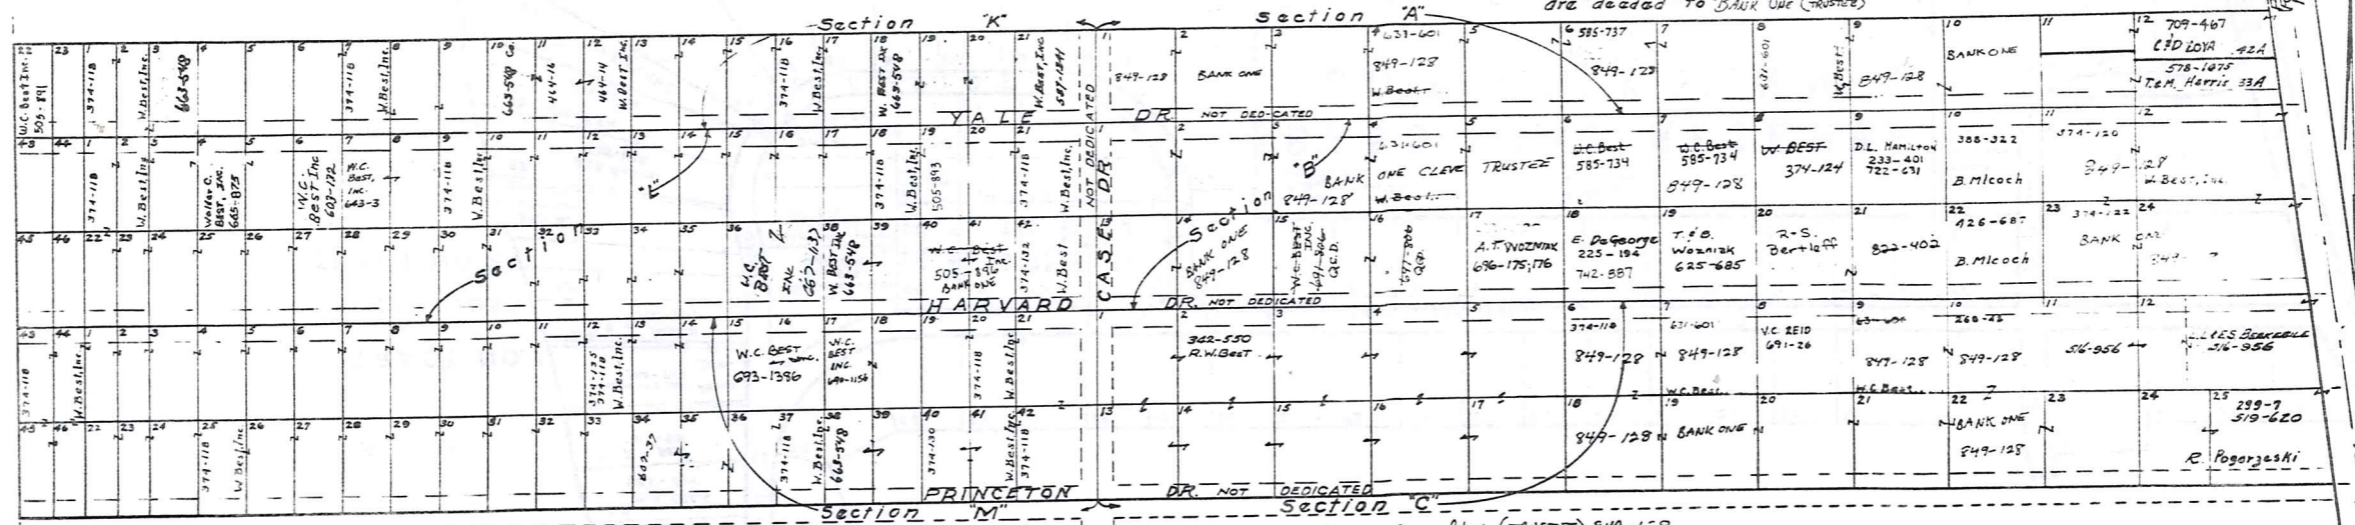 are deeded to BANK ONE (TRUSTEE)
Section "K"
Section "A"
22 23 1 2 3 4 5 6 7 8 9 10 11 12 13 14 15 16 17 18 19 20 21
W.C. Best Inc.
505-891
374-118
W. Best, Inc.
663-548
374-118
W. Best, Inc.
663-548 Co.
464-14
464-14
W. Best Inc.
374-118
W. Best, Inc.
W. BEST INC
663-548
W. Best, Inc.
587-1241
1 2 3 4 5 6 7 8 9 10 11 12
849-128
BANK ONE
631-601
849-128
W. Best
585-737
849-128
631-601
W. Best
849-128
BANK ONE
709-467
C&D LOYA 42A
578-1075
T.&M. Harris 33A
YALE DR. NOT DEDICATED
NOT DEDICATED
CASE DR.
43 44 1 2 3 4 5 6 7 8 9 10 11 12 13 14 15 16 17 18 19 20 21
374-118
W. Best, Inc.
Walter C.
BEST, INC.
665-875
W.C.
BEST Inc
603-172
W.C.
Best,
INC.
643-3
374-118
W. Best, Inc
"L"
374-118
W. Best, Inc.
505-893
374-118
W. Best, Inc.
1 2 3 4 5 6 7 8 9 10 11 12
"B"
849-128
BANK ONE CLEVE TRUSTEE
631-601
W. Best
W.C. Best
585-734
W.C. Best
585-734
849-128
W BEST
374-124
D.L. HAMILTON
233-401
722-631
388-322
B. Mlcoch
374-120
849-128
W. Best, Inc.
45 46 22 23 24 25 26 27 28 29 30 31 32 33 34 35 36 37 38 39 40 41 42
Section
W.C.
BEST
INC
667-1137
W. BEST INC
663-548
W.C. Best
Inc.
505-896
BANK ONE
374-132
W. Best
13 14 15 16 17 18 19 20 21 22 23 24
Section
BANK ONE
849-128
W.C. BEST
INC.
691-806
Q.C.D.
691-806
A.T. WOZNIAK
696-175,176
E. DeGeorge
225-194
742-887
T. & B.
Wozniak
625-685
R-S.
Bertleff
822-402
426-687
B. Mlcoch
374-122
BANK ONE
HARVARD DR. NOT DEDICATED
43 44 1 2 3 4 5 6 7 8 9 10 11 12 13 14 15 16 17 18 19 20 21
374-118
W. Best, Inc.
374-135
374-118
W. Best, Inc.
W.C. BEST
Inc.
693-1386
W.C.
BEST
INC.
690-1156
374-118
W. Best, Inc
1 2 3 4 5 6 7 8 9 10 11 12
342-550
R.W. Best
374-118
849-128
631-601
849-128
W.C. Best
V.C. REID
691-26
849-128
W.C. Best
849-128
516-956
L.L. & E.S. BERKEBILE
516-956
45 46 22 23 24 25 26 27 28 29 30 31 32 33 34 35 36 37 38 39 40 41 42
374-118
W Best, Inc
602-37
374-118
W. Best, Inc.
663-548
374-130
W. Best, Inc.
374-118
13 14 15 16 17 18 19 20 21 22 23 24 25
849-128
BANK ONE
BANK ONE
849-128
299-7
519-620
R. Pogorzeski
PRINCETON DR. NOT DEDICATED
Section "M"
Section "C"